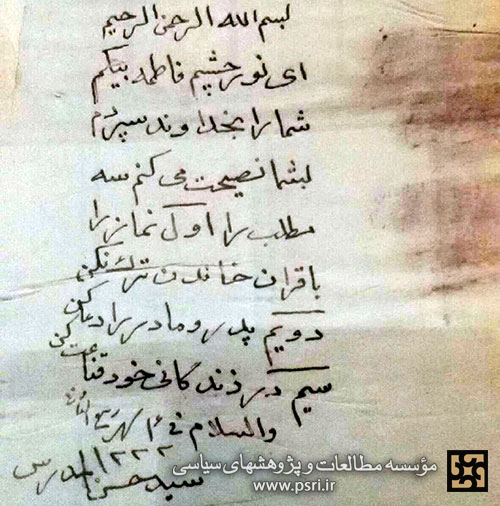 بسم الله الرحمن الرحیم
ای نور چشم فاطمه بیگم
شما را بخداوند سپردم
بشما نصیحت می کنم سه
مطلب را اول نماز را
با قران خاندن ترک نکن
دویم پدر و مادر را دعا کن
سیم در زندگانی خود قناعت کن
والسلام فی ۲۰ شهر ربیع الثانی
۱۳۲۲
سید حسن المدرس
مؤسسه مطالعات و پژوهشهای سیاسی
www.psri.ir